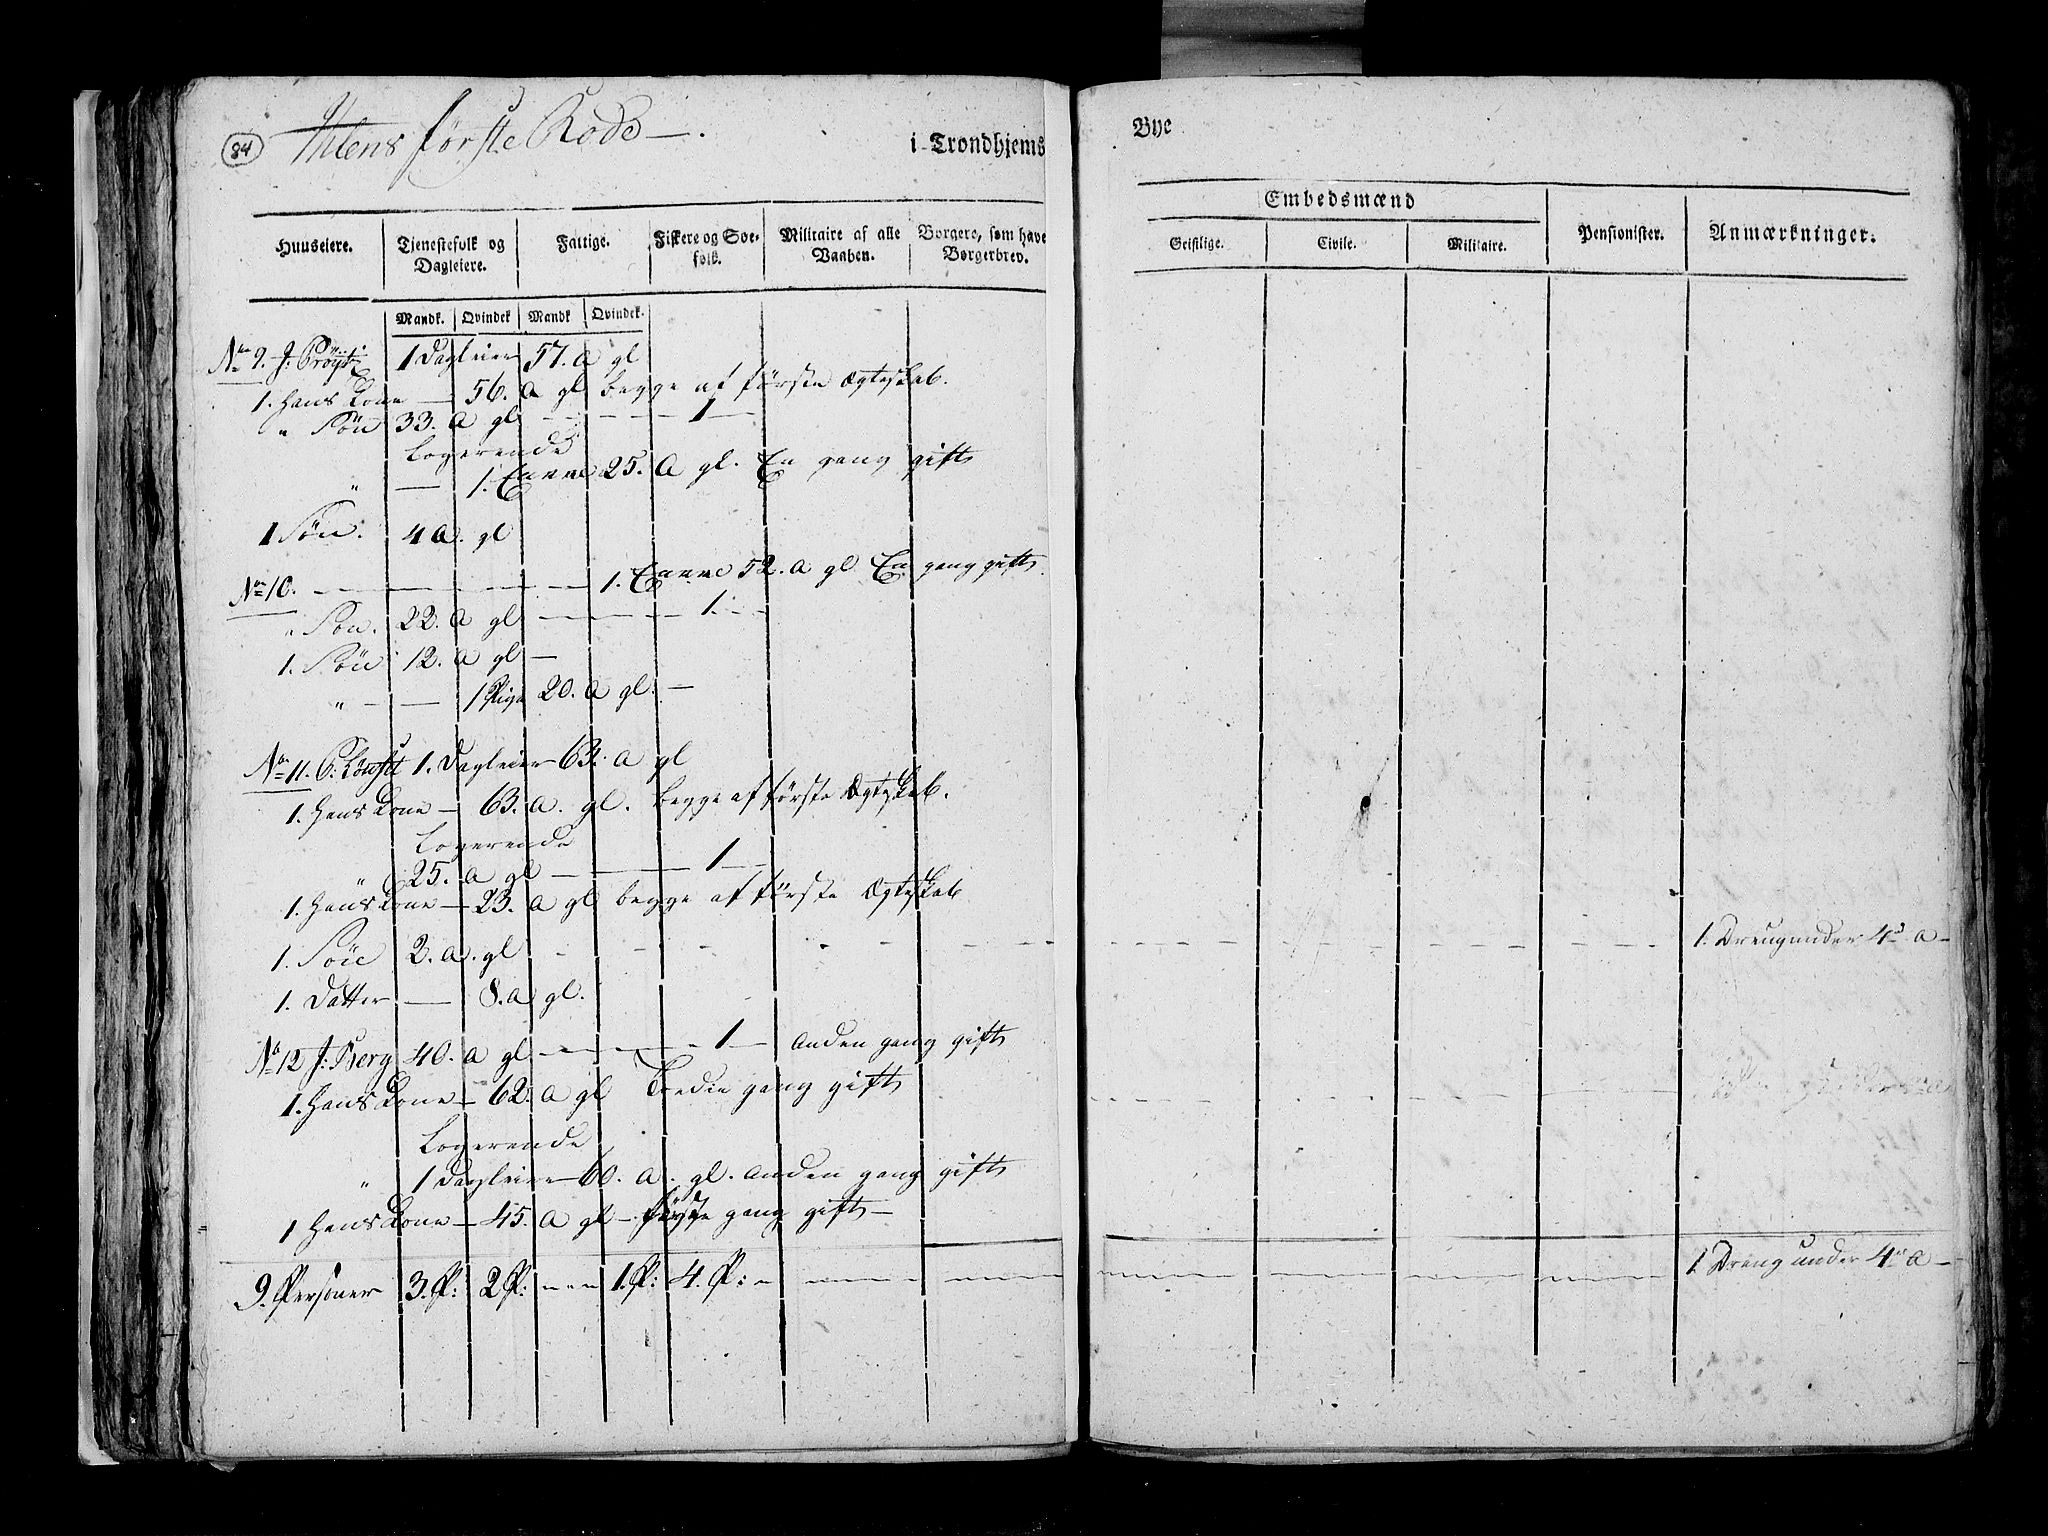 84
Ihlens første Rode —.
i Trondhjems
Bye
Huuseiere.
Tjenestefolk og Dagleiere.
Fattige.
Fiskere og Søefolk.
Militaire af alle Vaaben.
Borgere, som have Borgerbrev.
Embedsmænd
Geistlige.
Civile.
Militaire.
Pensionister.
Anmærkninger.
Mandk. Qvindek Mandk Qvindek.
No 9. J: 1 Dagleier 57. a gl
1. Hans Kone — 56. a gl begge af første Ægteskab.
" Søn 33. a gl — — — 1 —
Logerende
" — 1. Enke 25. a gl. En gang gift
1 Søn. 4 a. gl
No 10. — — — — 1. Enke 52. a gl En gang gift
" Søn. 22. a gl — — — 1. —
1. Søn 12. a gl —
" — — 1 Pige 20. a gl. —
No 11. 1. Dagleier 63. a gl
1. Hans Kone — 63. a. gl. begge af første Ægteskab.
Logerende
" 25. a gl — — 1 —
1. Hans Kone — 23. a gl begge af første Ægteskab
1. Søn 2. a. gl — — — — — — 1. Dreng under 4 a —
1. Datter — 8. a gl.
No 12 J: Berg 40. a gl — — — 1 — Anden gang gift
1. Hans Kone — 62. a gl Tredie gang gift
Logerende
" 1 Dagleier 60. a. gl. Anden gang gift
1 Hans Kone — 45. a gl — første gang gift —
9. Personer 3. P: 2 P: — — 1. P: 4. P: — — — — — — 1. Dreng under 4 a —